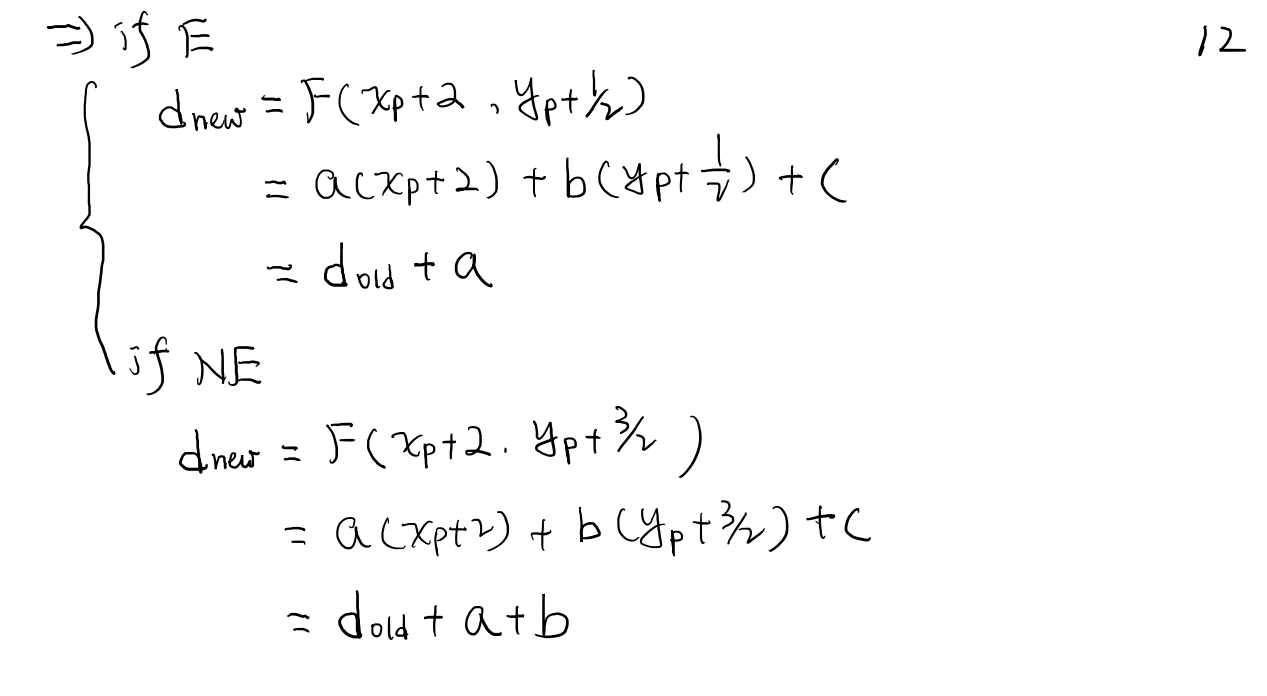 ⇒ if E 12
d_new = F(x_p+2, y_p+1/2)
= a(x_p+2) + b(y_p+1/2) + c
= d_old + a
if NE
d_new = F(x_p+2. y_p+3/2)
= a(x_p+2) + b(y_p+3/2) + c
= d_old + a+b